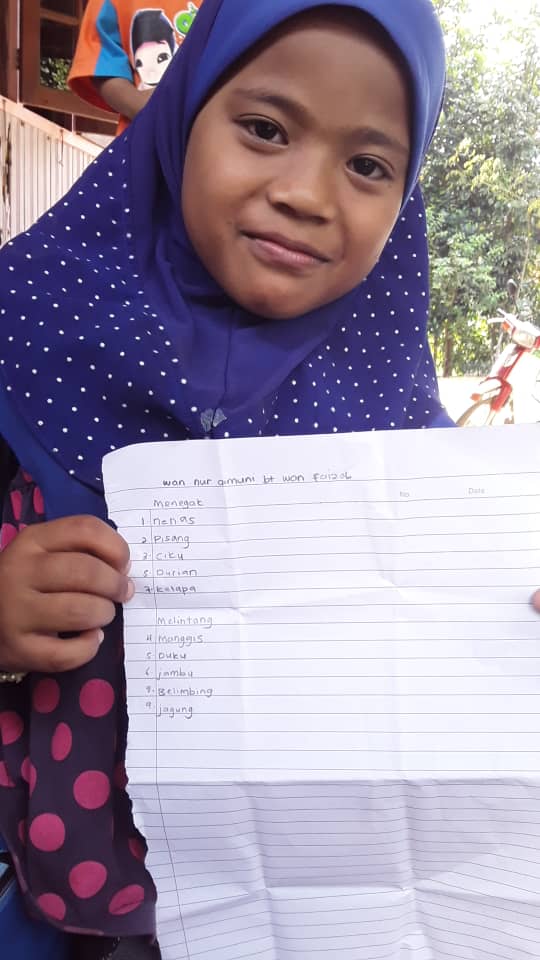 wan nur aimuni bt wan Faizal
No.
Date
Menegak
1. nenas
2. Pisang
3. Ciku
5. Durian
7. kelapa
Melintang
4 Manggis
5. Duku
6. jambu
8. Belimbing
9. jagung